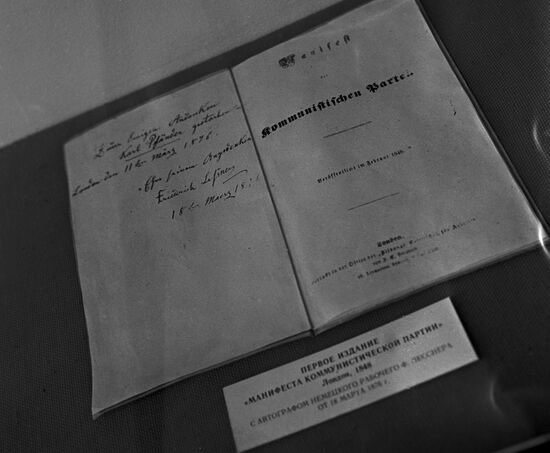 Zum ewigen Andenken
Karl Pfänder gestorben
London den 11ten März 1876.
Ehre seinem Angedenken
Friedrich Leßner
18ten März
Manifest
der
Kommunistischen Partei
Veröffentlicht im Februar 1848.
London.
Gedruckt in der Office der „Bildungs-Gesellschaft für Arbeiter"
von J. E. Burghard
46, Liverpool Street,
ПЕРВОЕ ИЗДАНИЕ
«МАНИФЕСТА КОММУНИСТИЧЕСКОЙ ПАРТИИ»
Лондон, 1848
С АВТОГРАФОМ НЕМЕЦКОГО РАБОЧЕГО Ф. ЛЕССНЕРА
ОТ 18 МАРТА 1876 г.